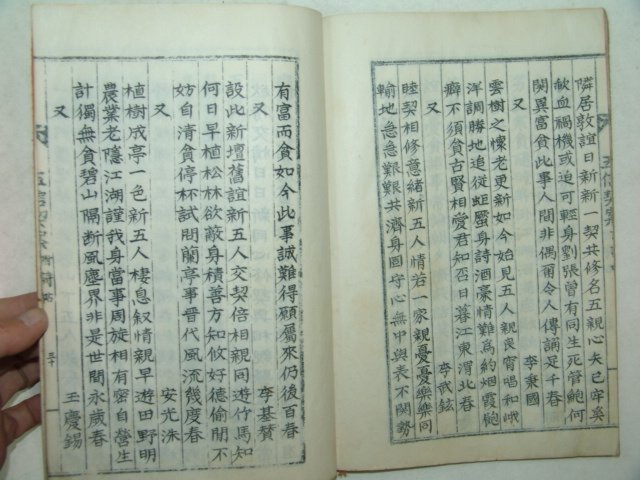 隣居敦誼日新新一契共修名五親心矢已牢奚
歃血禍機或迫可輕身劉張曾有同生死管鮑何
関異富貧此事人間非偶爾令人傳誦足千春
又 李秉國
雲樹之懷老更新如今始見五人親良宵唱和峨
洋調勝地追從身詩酒豪情難爲約烟霞
癖不須貧古賢相愛君知否日暮江東渭北春
又 李鉉
睦契相修意緒新五人情若一家親憂憂樂樂同
輸地急急艱艱共濟身固守心無中與表不関勢
有富而貧如今此事誠難得願屬來仍後百春
又 李基賛
設此新壇舊誼新五人交契倍相親同遊竹馬知
何日早植松林欲蔽身積善方知攸好德偷閒不
妨自清貧停杯試問蘭亭事晋代風流幾度春
又 安光洙
植樹成亭一色新五人棲息叙情親早遊田野明
農業老隱江湖謹我身當事周旋相有密自營生
計獨無貧碧山隔断風塵界非是世間永歲春
又 王慶錫
三十